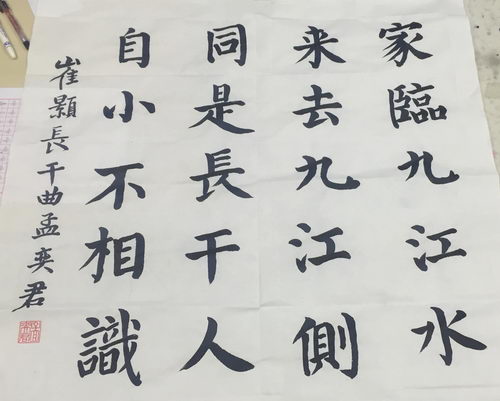 家臨九江水
来去九江側
同是長干人
自小不相識
崔顥長干曲孟奕君